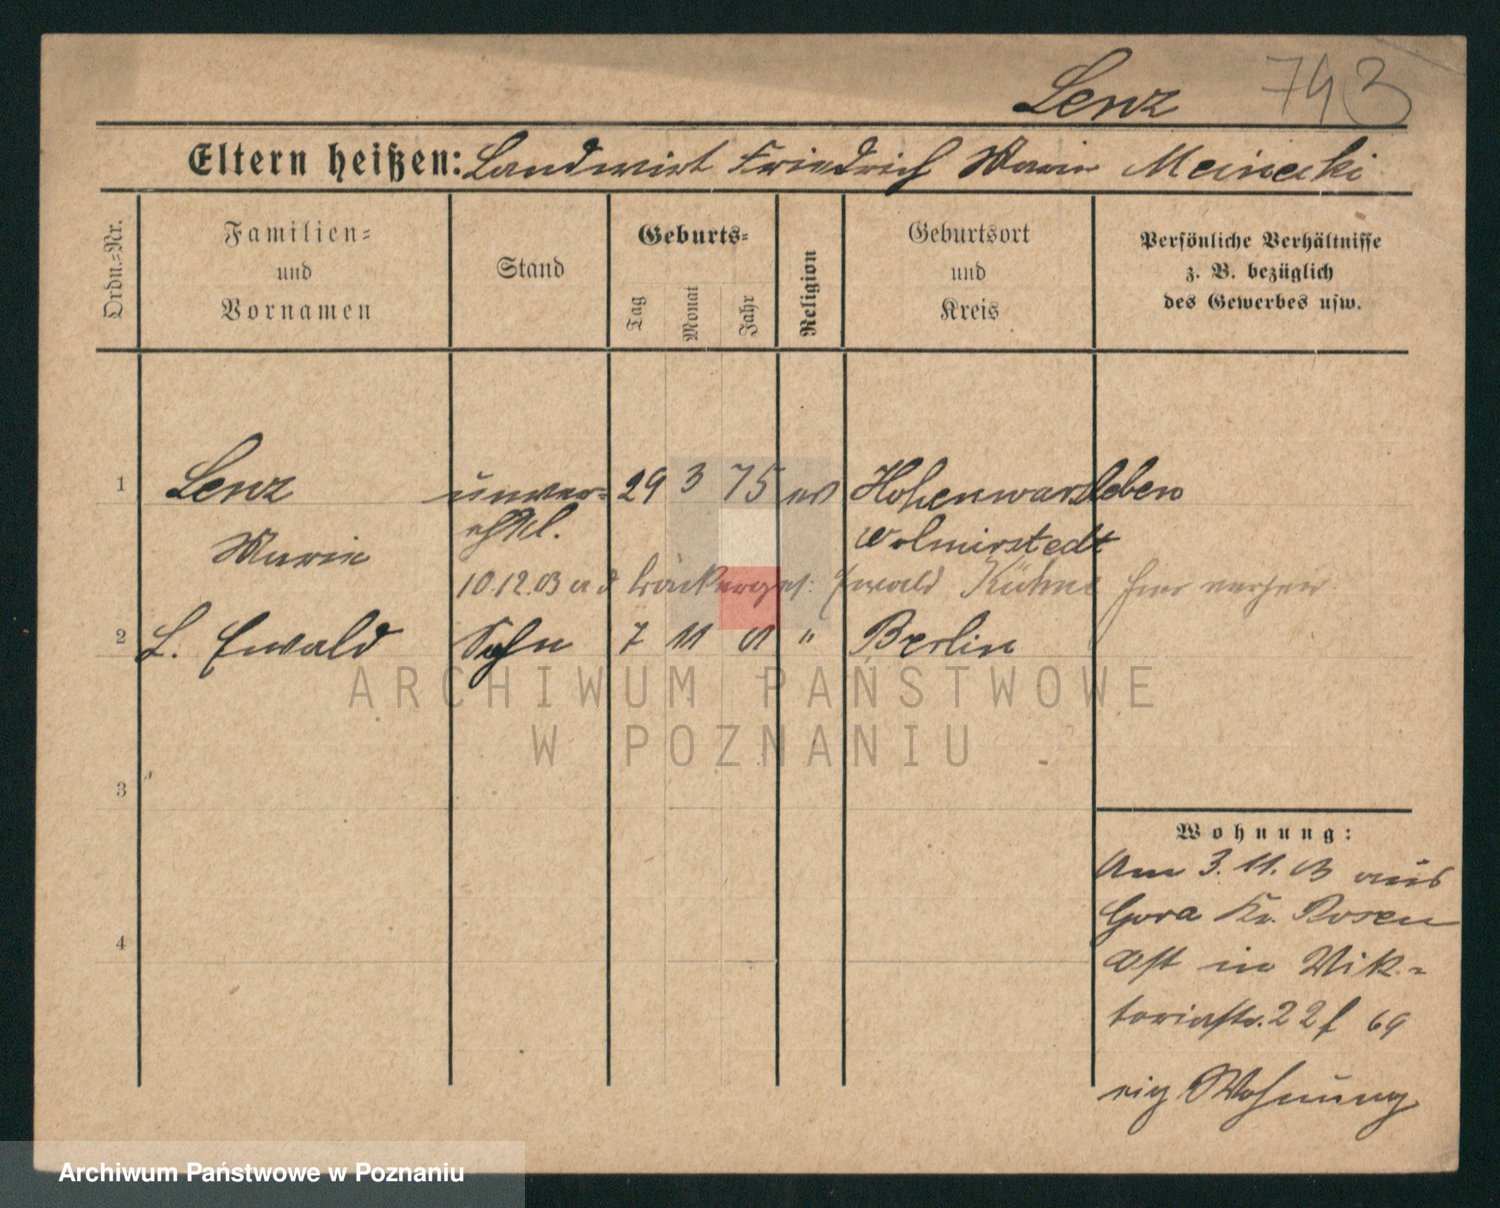 Lenz 743
Eltern heißen: Landwirt Friedrich Marie Meinecki
Ordn.-Nr.
Familien-
und
Vornamen
Stand
Geburts-
Tag
Monat
Jahr
Religion
Geburtsort
und
Kreis
Persönliche Verhältnisse
z. B. bezüglich
des Gewerbes usw.
1 Lenz unver- 29 3 75 ev Hohenwarsleben
ehel. Wolmirstedt
Marie
10.12.03 Bäckerges. Ewald Kühne hier
2 L. Ewald Sohn 7 11 01 " Berlin
3
4
Wohnung:
Am 3.11.03 aus
Gora Kr. Posen
Ost in Vik-
toriastr. 22 69
eig Wohnung
ARCHIWUM PAŃSTWOWE
W POZNANIU
Archiwum Państwowe w Poznaniu